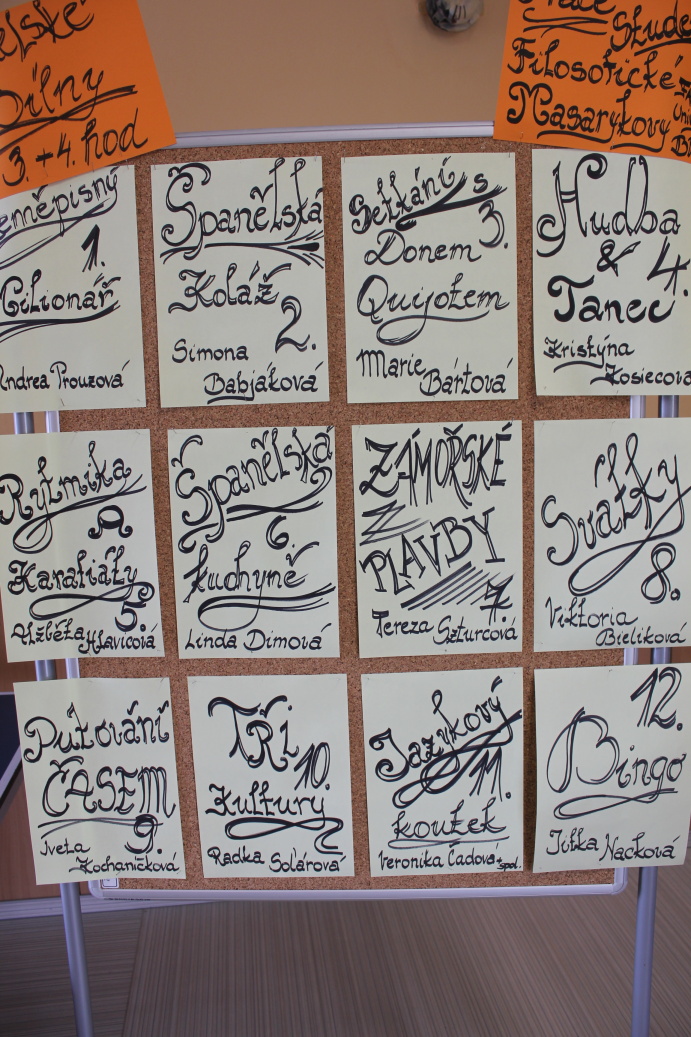 Dílny
3. + 4. hod
Práce
Stude
Filosofické
Masarykovy
eměpisný
1.
Cilionář
Andrea Prouzová
Španělská
Koláž
2.
Simona
Babjáková
Setkání s
3.
Donem
Quijotem
Marie
Bártová
Hudba
&
4.
Tanec
Kristýna
Kosiecova
Rytmika
A
Karafiáty
5.
Alžběta Hlavicová
Španělská
6.
Kuchyně
Linda Dimová
ZÁMOŘSKÉ
PLAVBY
7.
Tereza Szturcová
Svátky
8.
Viktoria
Bieliková
Putování
ČASEM
9.
Iveta
Kochaníčková
Tři
10.
Kultury
Radka Solárová
Jazykový
11.
koutek
Veronika Čadová + spol.
12.
Bingo
Jitka Nacková